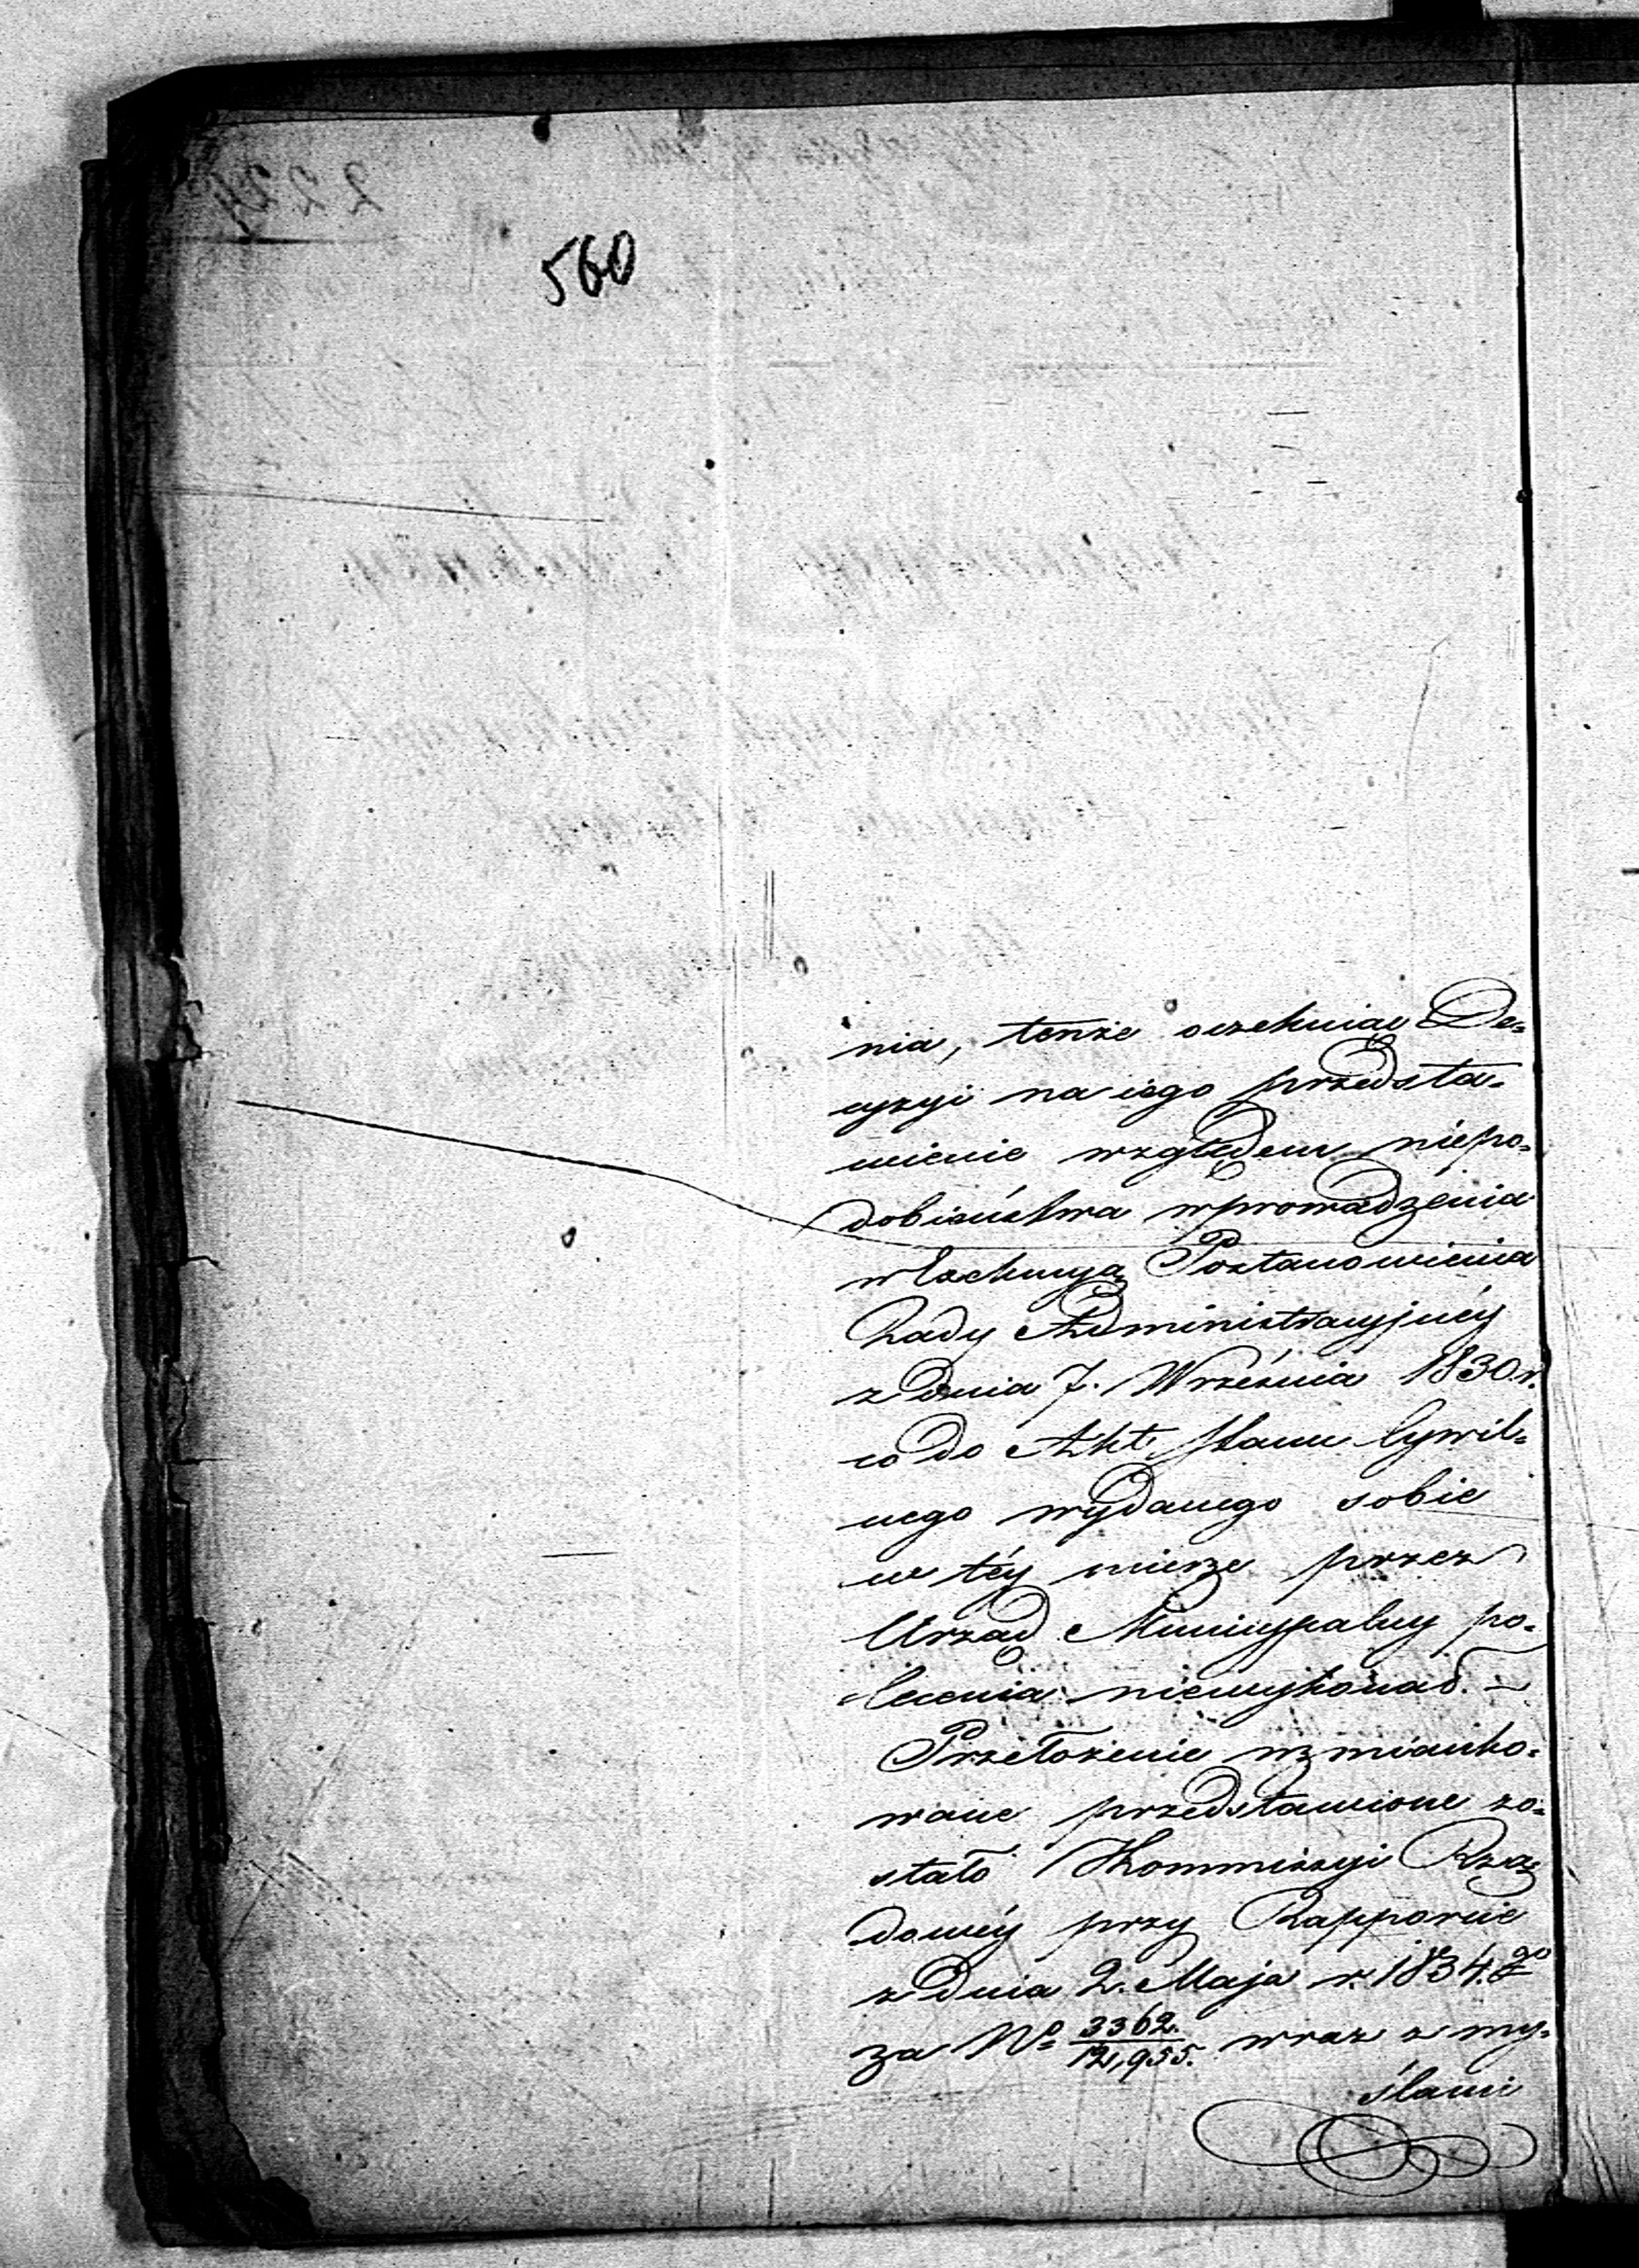 560
nia, tenże oczekuiąc De=
cyzyi na iego przedsta=
wienie względem niepo=
dobieństwa wprowadzenia
w Exekucyą Postanowienia
Rady Administracyjnéy
z dnia 7. Września 1830 r.
co do Akt Stanu Cywil=
nego wydanego sobie
w téy mierze przez
Urząd Municypalny po=
lecenia niewykonał. –
Przełożenie wzmianko=
wane przedstawione zo=
stało Kommissyi Rzą=
dowéy przy Rapporcie
z dnia 2. Maja r. 1834.go
za No 3362./12,955. wraz z my=
ślami